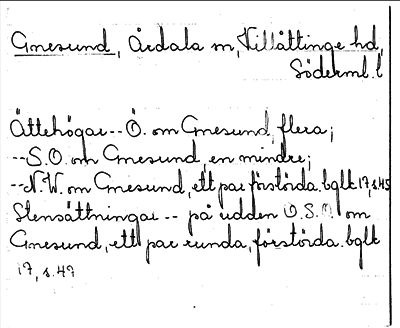 Gnesund, Årdala sn, Villåttinge hd,
Söderml. l
Ättehögar -- Ö. om Gnesund, flera;
-- S.O. om Gnesund, en mindre;
-- N.W. om Gnesund, ett par förstörda. bglt 17, s. 45
Stensättningar -- på udden O.S.O. om
Gnesund, ett par runda, förstörda. bglt
17, s. 47